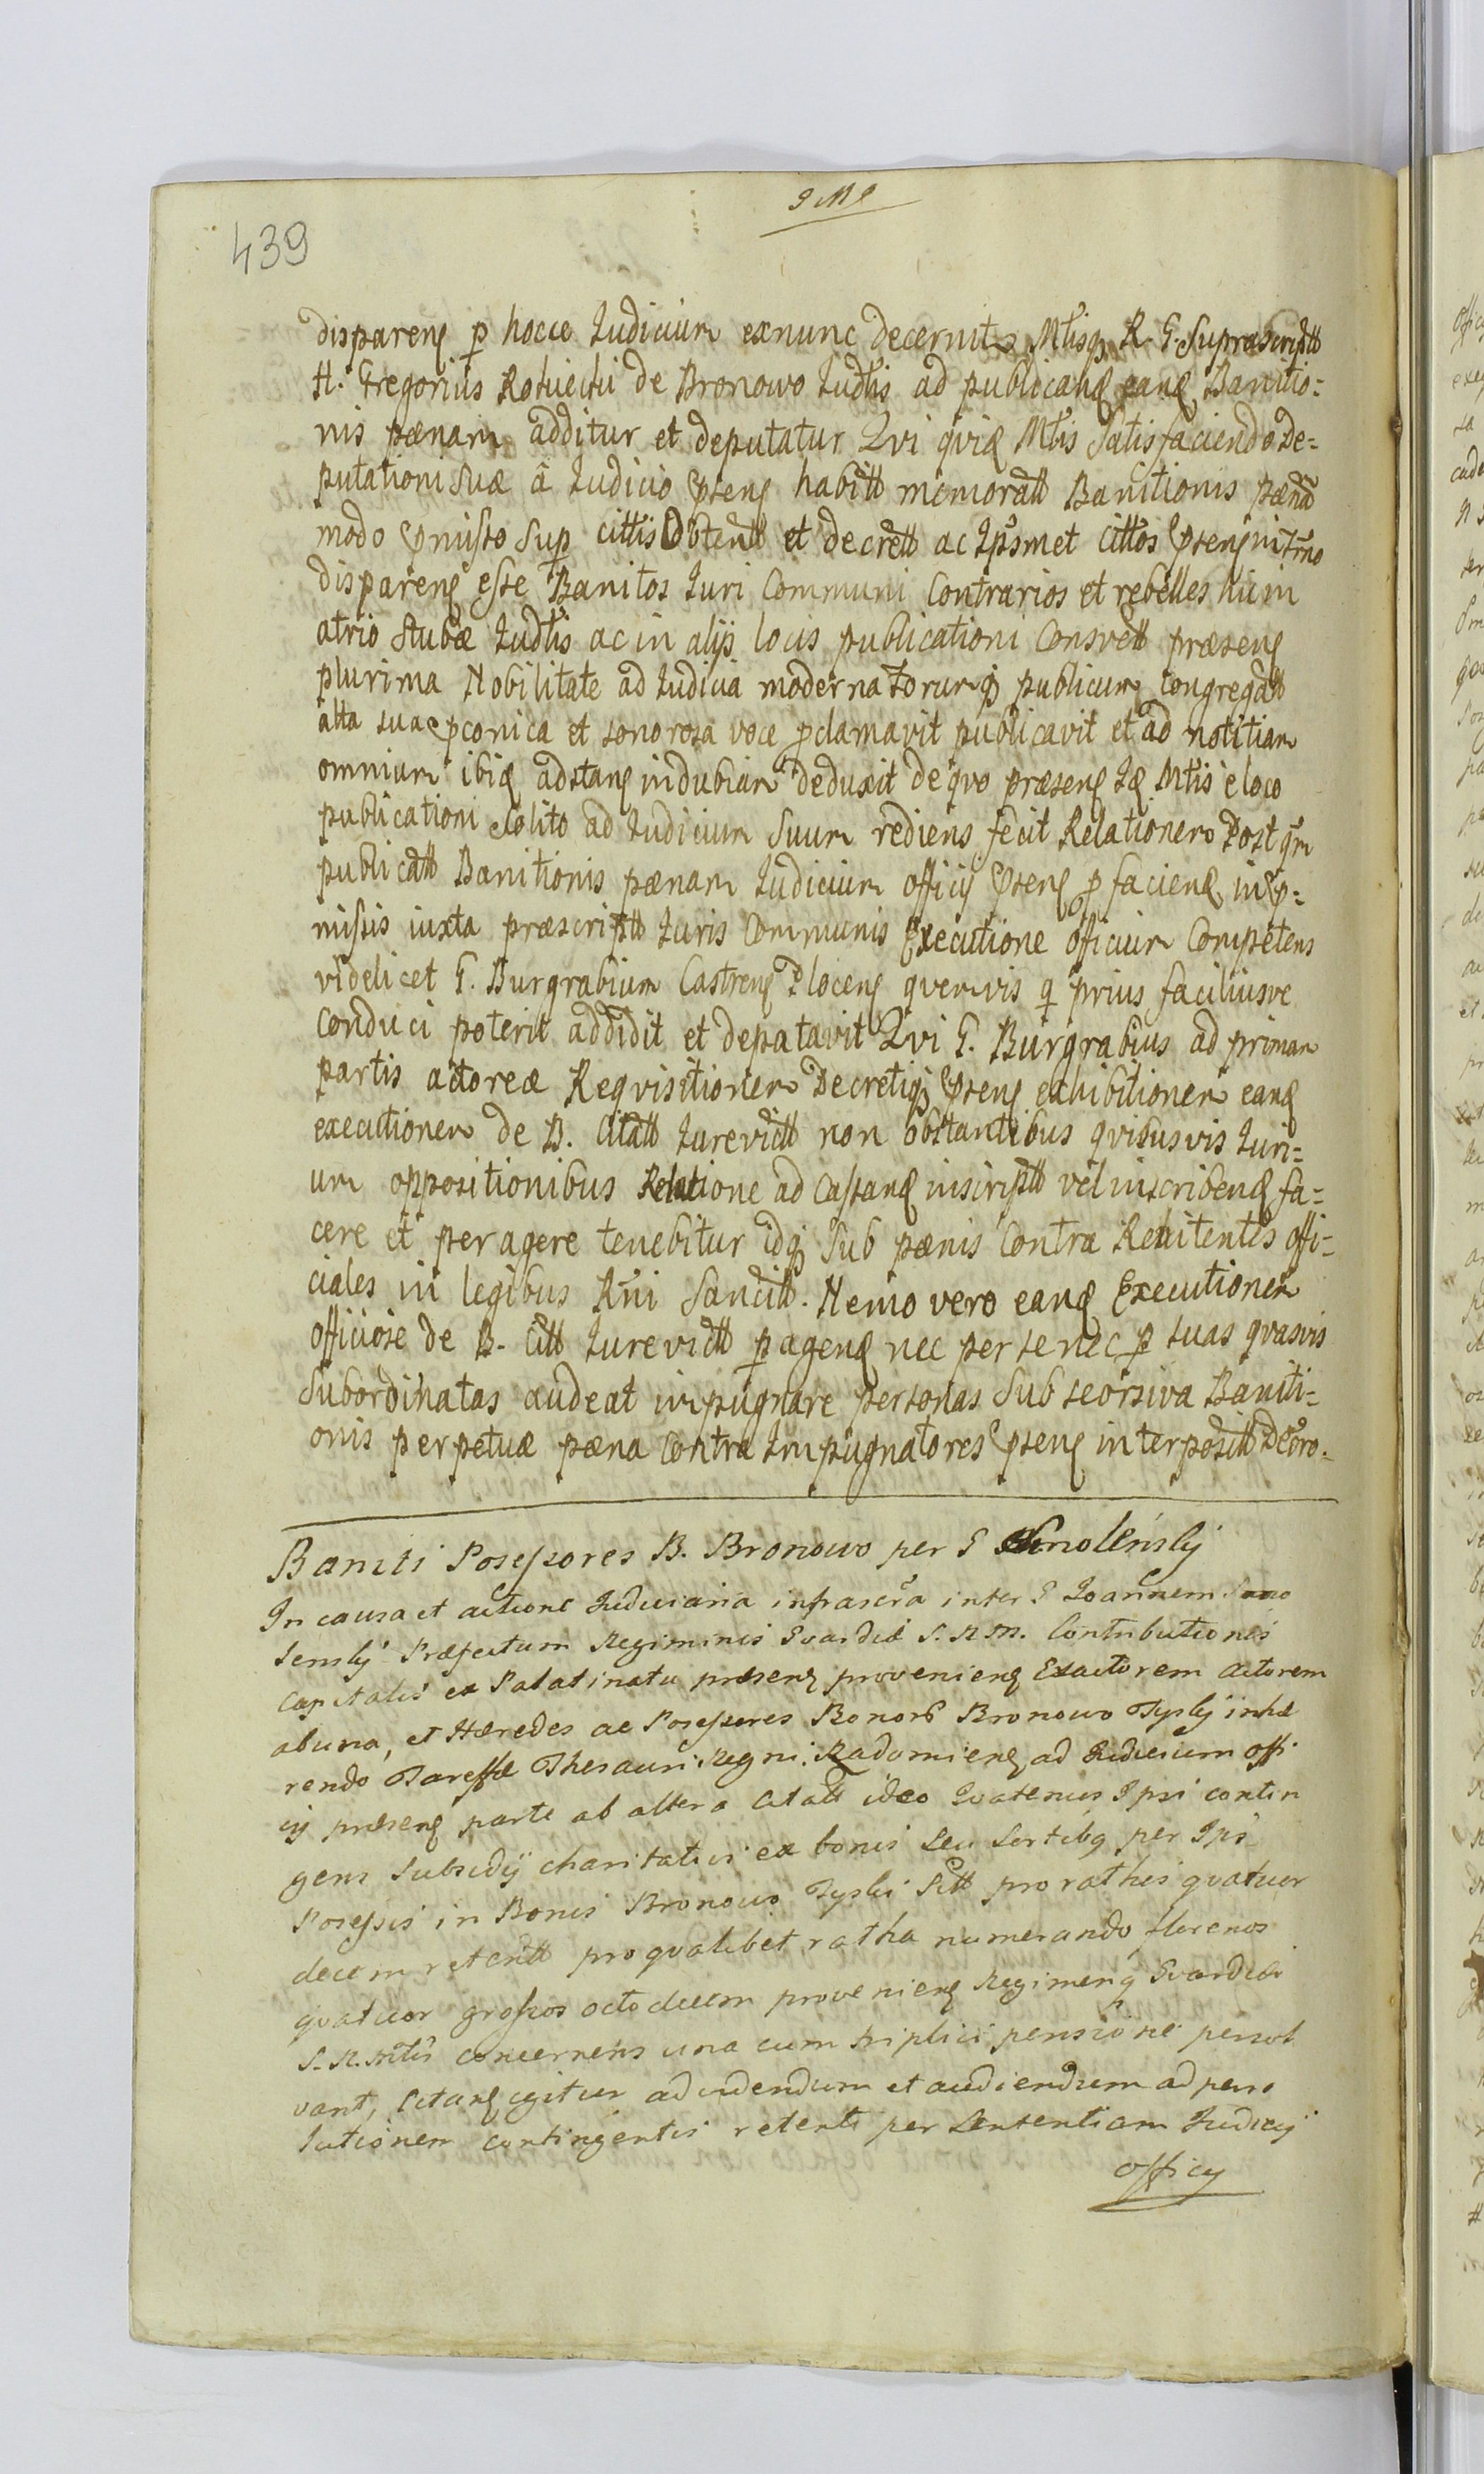 439
disparenꝭ ꝑ hocce Iudicium exnunc decernit Mtisqꝫ R. G. Suprascriptt
H. Gregorius de Bronowo Iudtis ad publicanꝭ eanꝭ Banitio=
nis pænam additur et deputatur Qvi qvidꝭ Mtis Satisfaciendo De=
putationi Suæ â Iudicio Prsenꝭ habitt memoratt Banitionis pænã
modo Præmisso Sup cittis Obtentt et decrett ac Ipsmet Cittos Prsenꝭ in Trno
disparenꝭ esse Banitos Iuri Communi Contrarios et rebelles hic in
atrio Stubæ Iudtis ac in alijs locis publicationi Consvett præsenꝭ
plurima Nobilitate ad Iudicia moderna Forumqꝫ publicum Congregatt
alta sua Præconica et sonorosa voce proclamavit publicavit et ad notitiam
omnium ibiꝭ adstanꝭ indubiam deduxit de qvo præsenꝭ Idꝭ Mtis e loco
publicationi Solito ad Iudicium Suum rediens fecit Relationem Post qm
publicatt Banitionis pænam Iudicium officij Prsenꝭ pro facienꝭ in Præ=
missis iuxta præscriptt Iuris Communis Executione officium Competens
videlicet G. Burgrabium Castrenꝭ Plocenꝭ qvemvis q prius faciliusve
Conduci poterit addidit et depatavit Qvi G. Burgrabius ad primam
partis actoreæ Reqvisitionem Decretiqꝫ Prsenꝭ exhibitionem eanꝭ
executionem de B. Citatt Iurevictt non obstantibus qvibusvis Iuri=
um oppositionibus Relatione ad Castanꝭ inscriptt vel inscribenꝭ fa=
cere et peragere tenebitur idqꝫ Sub pænis Contra Renitentes offi=
ciales in legibus Rni Sancitt. Nemo vero eanꝭ Executionem
officiose de B. Citt Iurevictt peragenꝭ nec per se nec ꝑ suas qvasvis
Subordinatas audeat impugnare personas Sub seorsiva Baniti=
onis perpetuæ pæna Contra Impugnatores Prsenꝭ interpositt Decro.
Baniti Posessores B. Bronowo per G Smolensky
In causa et actione Iudiciaria infrascra inter G Ioannem Smo
lensky Præfectum Regiminis Gvardiæ S. R. M. Contributionis
Capitalis ex Palatinatu præsenꝭ provenienꝭ Exactorem actorem
ab una, et Hæredes ac Posessores Bonorꝭ Bronowo Tysky inhæ
rendo Tareffæ Thesauri Regni Radomienꝭ ad Iudicium offi
cij præsenꝭ parte ab altera Citatt ideo Qvatenus Ipsi contin
gens Subsidij charitativi ex bonis Seu Sortibꝗ per Ips
Posessis in Bonis Bronowo Tyski Sitt pro rathis qvatuor
decem retentt pro qvalibet ratha numerando florenos
qvatuor grossos octodecem provenienꝭ Regimenꝗ Gvardiæ
S. R. Mtis concernens una cum triplici pensione persol
vant, Citanꝭ igitur ad videndum et audiendum ad perso
lutionem contingentis retenti per Sententiam Iudicij
officij